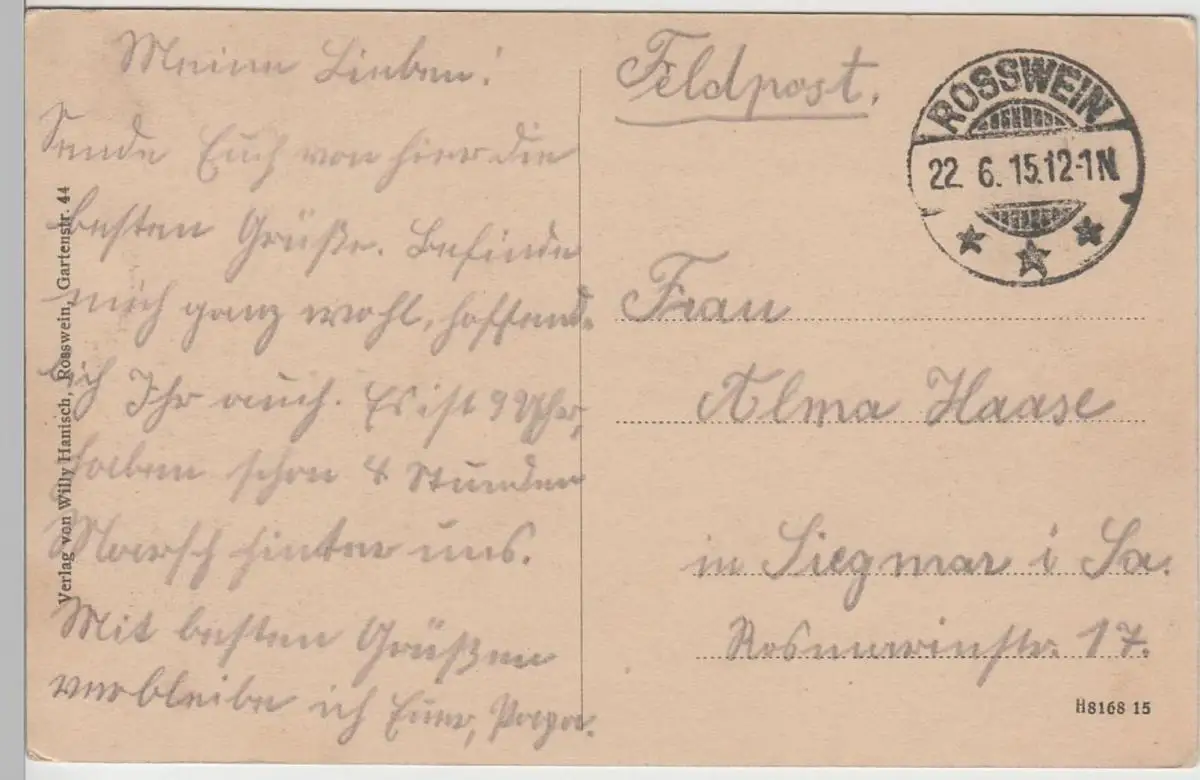 Meine Lieben!
Sende Euch von hier die
besten Grüße. Befinde
mich ganz wohl, hoffend-
lich Ihr auch. Es ist 9 Uhr,
haben schon 4 Stunden
Marsch hinter uns.
Mit besten Grüßen
verbleibe ich Euer, Papa.
Verlag von Willy Hanisch, Rosswein, Gartenstr. 44
Feldpost.
ROSSWEIN
22. 6. 15. 12-1 N
Frau
Alma Haase
in Siegmar i Sa.
Rosmarinstr. 17.
H8168 15